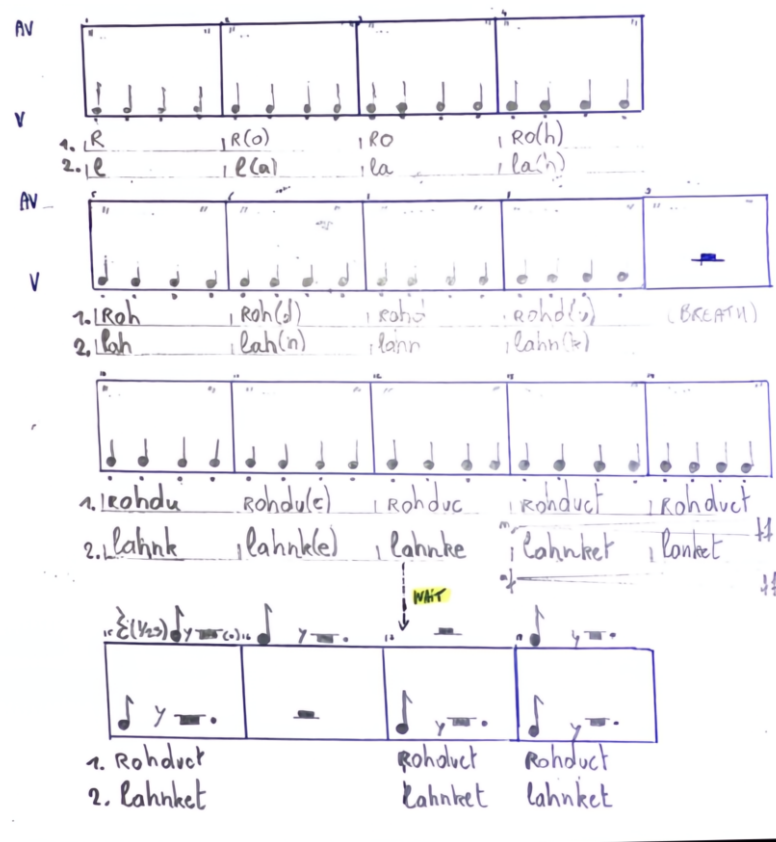 AV
V
1. R R(o) Ro Ro(h)
2. l l(a) la la(h)
AV
V
1. Roh Roh(d) Rohd Rohd(u) (BREATH)
2. lah lah(n) lahn lahn(k)
1. Rohdu Rohdu(c) Rohduc Rohduct Rohduct
2. lahnk lahnk(e) lahnke lahnket lanket
ff
ff
WAIT
1. Rohduct Rohduct Rohduct
2. lahnket lahnket lahnket